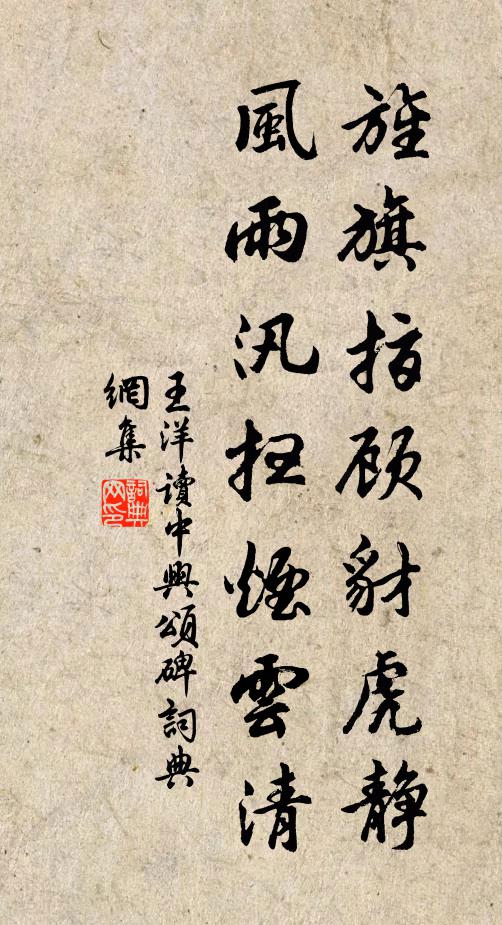 旌旗指顾豺虎静
風雨汛扫煙雲清
王洋讀中興頌碑詞典
網集
詞典
网印